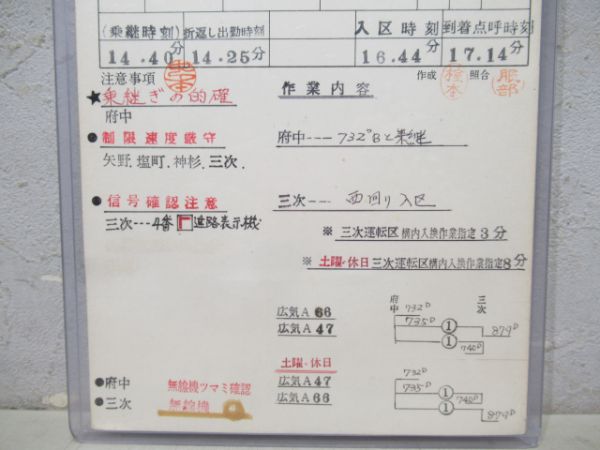 (乗継時刻) 折返し出勤時刻 入区時刻 到着点呼時刻
14.40分 14.25分 16.44分 17.14分
注意事項 作業内容 作成 照合
服部
★乗継ぎの的確
府中
●制限速度厳守 府中---732ᴰBと乗継
矢野.塩町.神杉.三次.
●信号確認注意 三次---西回り入区
三次---4番 進路表示機
※三次運転区構内入換作業指定3分
※土曜・休日三次運転区構内入換作業指定8分
広気A 66
広気A 47
府中 三次
732ᴰ
735ᴰ ① 879ᴰ
① 740ᴰ
土曜・休日
広気A47
広気A66
732ᴰ
735ᴰ ① 740ᴰ
① 879ᴰ
●府中 無線機ツマミ確認
●三次 無線機